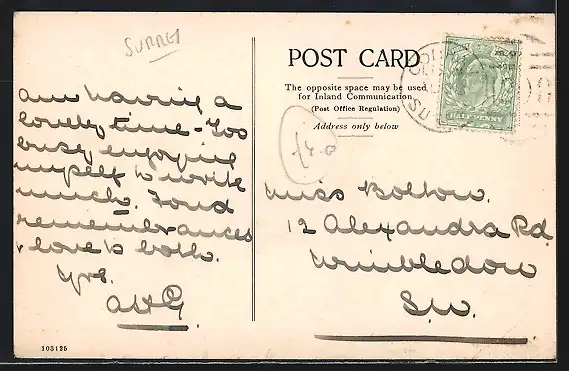 SURREY
am having a
lovely time - Too
busy enjoying
myself to write
much. Fond
remembrances
& love to both.
Yrs.
103125
POST CARD
The opposite space may be used
for Inland Communication
(Post Office Regulation)
Address only below
HALFPENNY
Miss Bolton.
12 Alexandra Rd
Wimbledon
S.W.